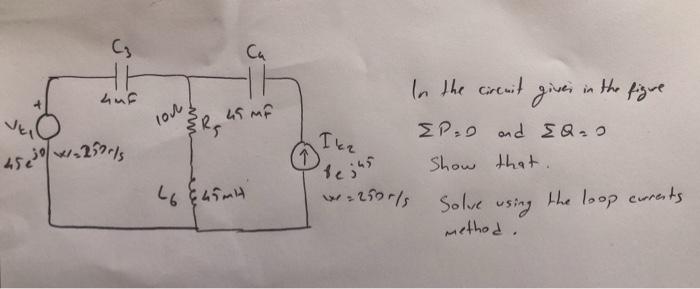 C3
C4
4mF
45 mF
10Ω
R5
+
Vk1
45e^j0
w=250r/s
Ik2
8e^j45
w=250r/s
L6
45mH
In the circuit given in the figure
ΣP=0 and ΣQ=0
Show that.
Solve using the loop currents
method.